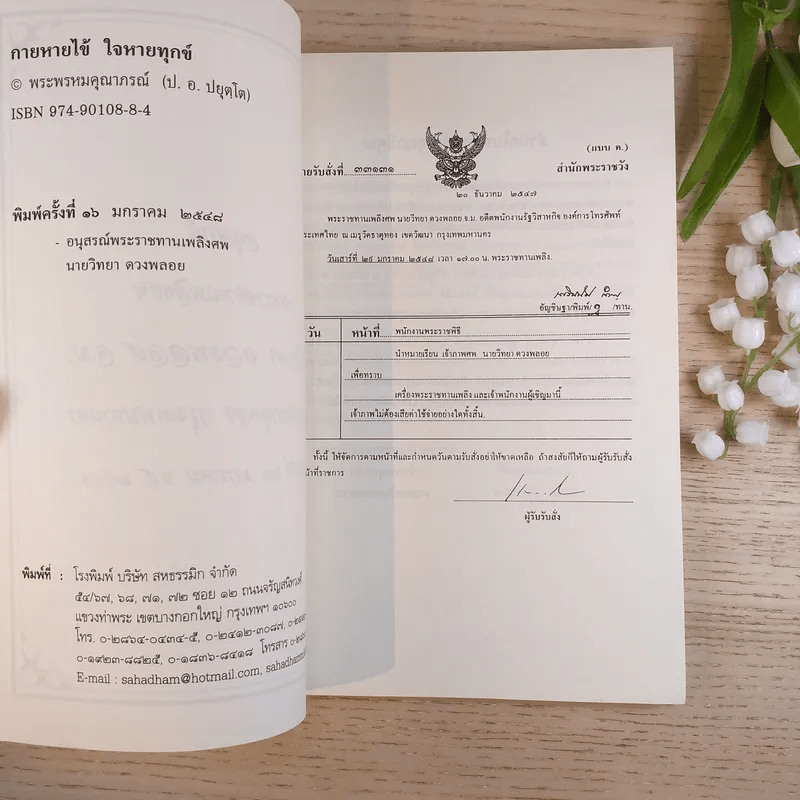 กายหายไข้ ใจหายทุกข์
© พระพรหมคุณาภรณ์ (ป. อ. ปยุตฺโต)
ISBN 974-90108-8-4
พิมพ์ครั้งที่ ๑๖ มกราคม ๒๕๔๘
- อนุสรณ์พระราชทานเพลิงศพ
นายวิทยา ดวงพลอย
พิมพ์ที่ : โรงพิมพ์ บริษัท สหธรรมิก จำกัด
๕๔/๖๗, ๖๘, ๗๑, ๗๒ ซอย ๑๒ ถนนจรัญสนิทวงศ์
แขวงท่าพระ เขตบางกอกใหญ่ กรุงเทพฯ ๑๐๖๐๐
โทร. ๐-๒๘๖๔-๐๔๓๔-๕, ๐-๒๔๑๒-๓๐๘๗,
๐-๑๙๒๓-๘๘๒๕, ๐-๑๘๓๖-๘๔๑๘ โทรสาร
E-mail : sahadham@hotmail.com,
(แบบ ค.)
ายรับสั่งที่ ๓๓๑๓๑ สำนักพระราชวัง
๒๐ ธันวาคม ๒๕๔๗
พระราชทานเพลิงศพ นายวิทยา ดวงพลอย จ.ม. อดีตพนักงานรัฐวิสาหกิจ องค์การโทรศัพท์
ระเทศไทย ณ เมรุวัดธาตุทอง เขตวัฒนา กรุงเทพมหานคร
วันเสาร์ที่ ๒๙ มกราคม ๒๕๔๘ เวลา ๑๗.๐๐ น. พระราชทานเพลิง.
อัญชิษฐา/พิมพ์/ /ทาน.
วัน หน้าที่ พนักงานพระราชพิธี
นำหมายเรียน เจ้าภาพศพ นายวิทยา ดวงพลอย
เพื่อทราบ
เครื่องพระราชทานเพลิง และเจ้าพนักงานผู้เชิญมานี้
เจ้าภาพไม่ต้องเสียค่าใช้จ่ายอย่างใดทั้งสิ้น.
ทั้งนี้ ให้จัดการตามหน้าที่และกำหนดวันตามรับสั่งอย่าให้ขาดเหลือ ถ้าสงสัยก็ให้ถามผู้รับรับสั่ง
น้าที่ราชการ
ผู้รับรับสั่ง